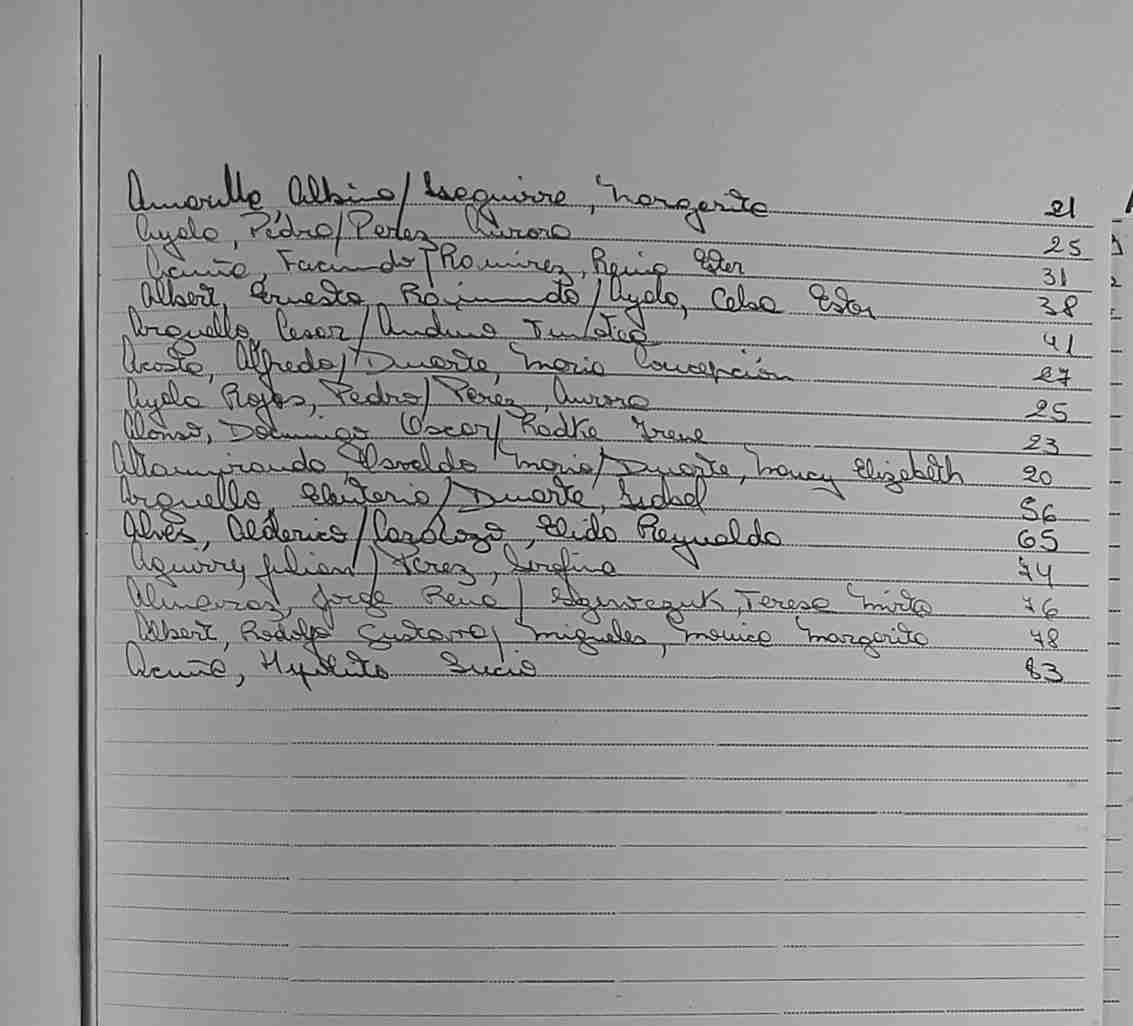 Amarilla Albino/ Iseguirre, Margarita 21
Ayala, Pedro/Perez Aurora 25
Acuña, Facundo/Ramirez, Regina Ester 31
Albert, Ernesto Raimundo/Ayala, Celsa Ester 38
Arguello Cesar/Andino 41
Acosta, Alfredo/Duarte, Maria Concepción 27
Ayala Rojas, Pedro/Perez, Aurora 25
Alonso, Domingo Oscar/Radke Irene 23
Altamirando, Osvaldo Mario/Duarte, Nancy Elizabeth 20
Arguello Eleuterio/Duarte, Isabel 56
Alves, Alderico/Cardozo, Elido Reynaldo 65
Aguirre, Julian/Perez, Serafina 74
Almeiraz, Jorge Rene/ Teresa Mirta 76
Albert, Rodolfo Gustavo/Migueles, Monica Margarita 78
Acuña, Hypolito Lucio 83